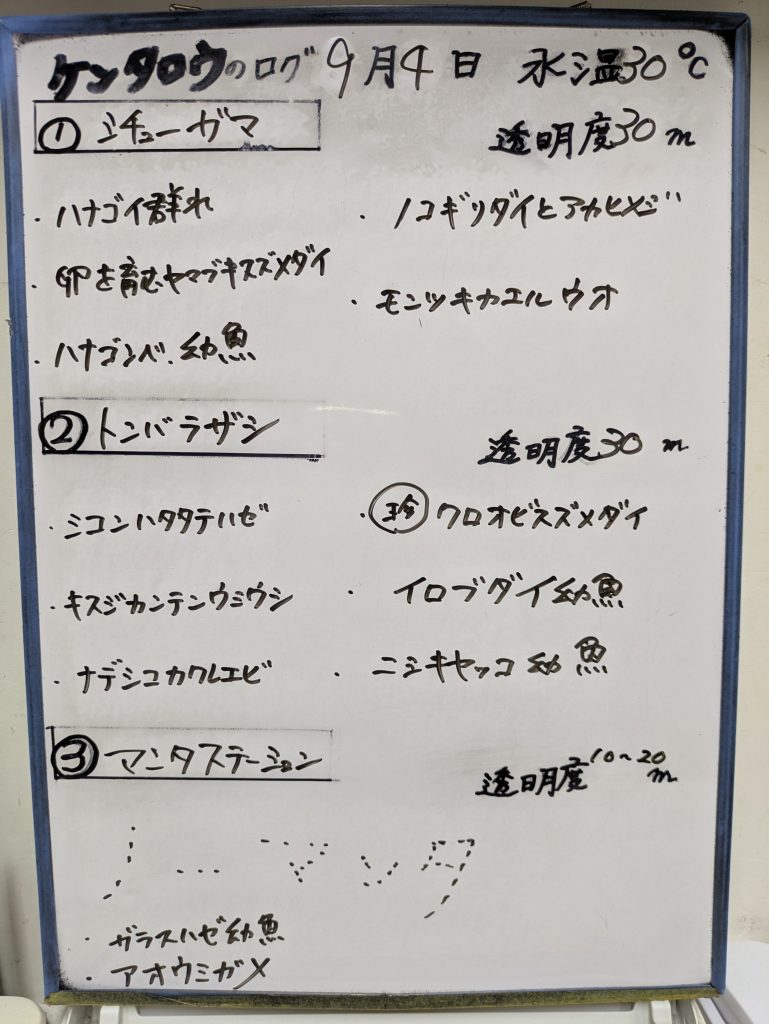 ケンタロウのログ 9月4日 水温30℃
① ミチューガマ 透明度30m
・ハナゴイ群れ
・卵を育むヤマブキスズメダイ
・ハナゴンベ幼魚
・ノコギリダイとアカヒメジ
・モンツキカエルウオ
② トンバラザシ 透明度30m
・ミコンハタタテハゼ
・キスジカンテンウミウシ
・ナデシコカクレエビ
・珍 クロオビスズメダイ
・イロブダイ幼魚
・ニシキヤッコ幼魚
③ マンタステーション 透明度10~20m
ノーマンタ
・ガラスハゼ幼魚
・アオウミガメ